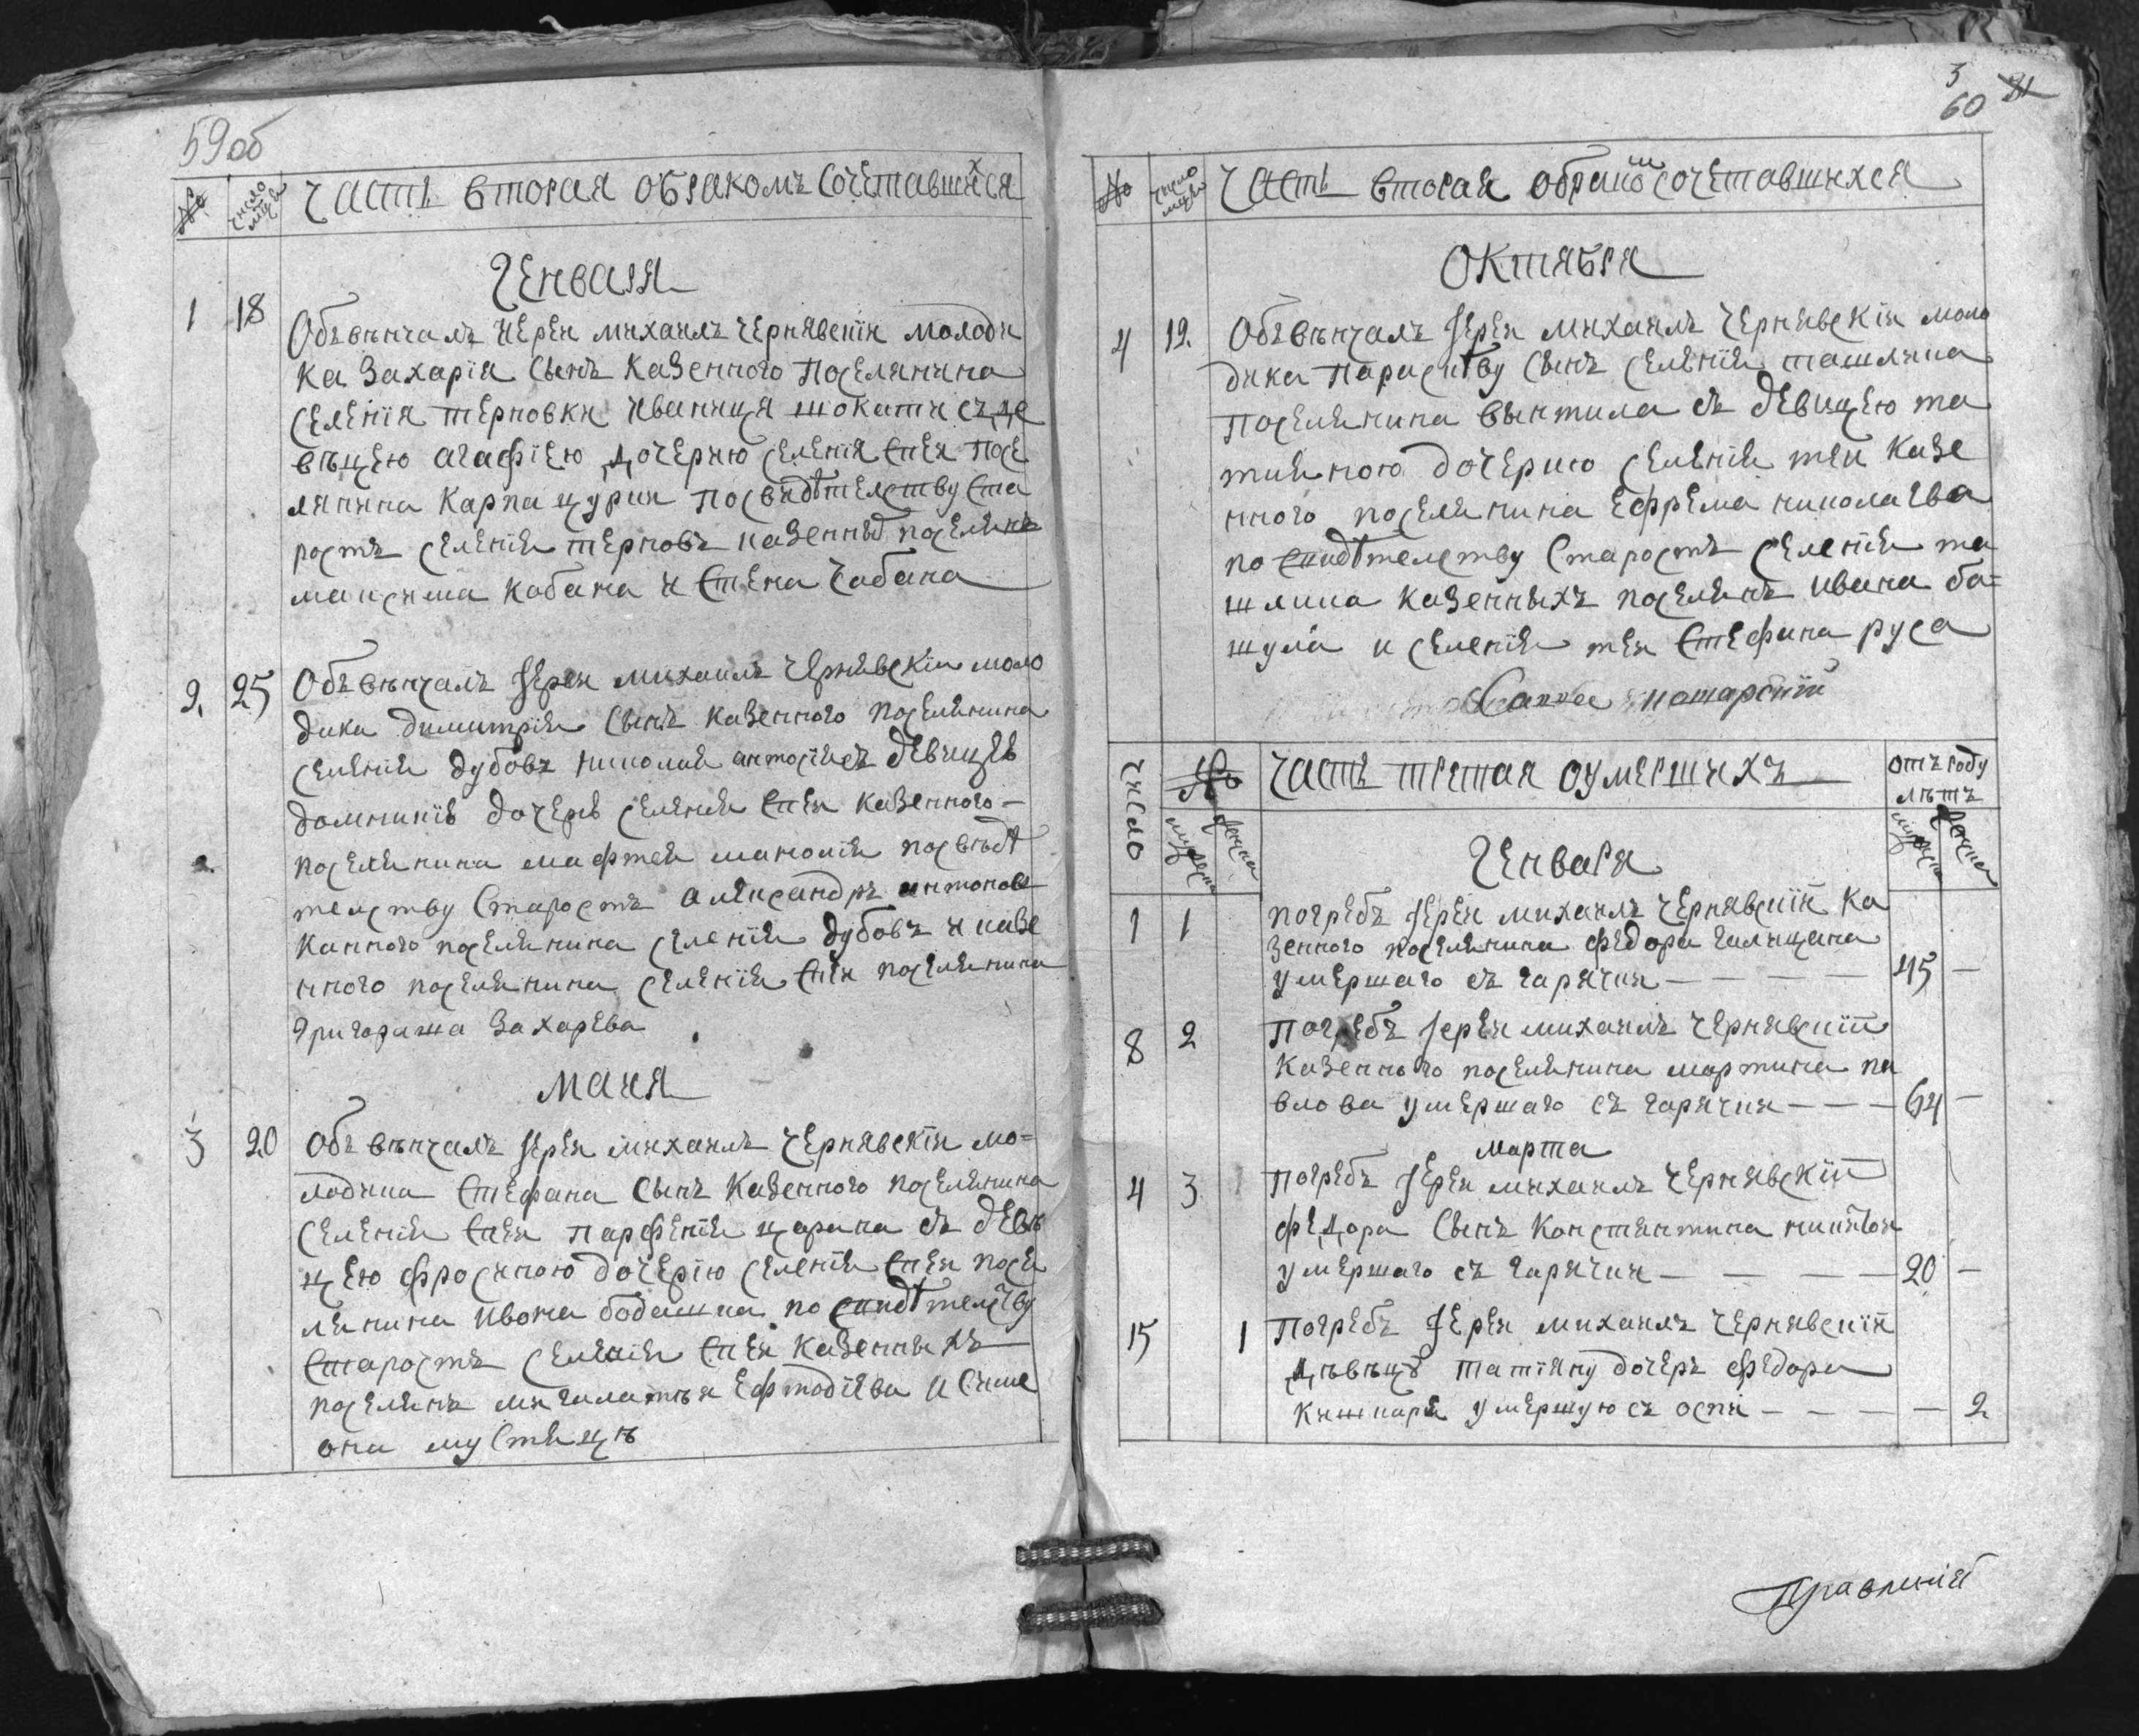 59об
№ число мцы Часть вторая обракомъ сочетавшихся
Генваря
1 18 Объвѣнчалъ иерей михаилъ чернявскїи молоди
ка Захарїя Сынъ Казенного Поселянина
Селенїя терновки иваница шокати съ де
вѣцею агафїею дочерию селенїя Спея Посе
лянина Карпа цурки посвидѣтелству Ста
ростъ селенїя терновъ казенныѣ поселянъ
максима кобана и Стена чабана
2. 25 Объвѣнчалъ Іерей михаилъ чернявскїи моло
дика димитрїя Сынъ Казенного поселянина
селенїя дубовъ николай антосїи съ девицев
домникїв дочерв селенїя Спея Казенного
поселянина мафтей маномїя посвѣдѣ
телству Старостъ александръ антонов
Канного поселянина селенїя дубовъ и казе
нного поселянина селенїя Спея поселянина
Григораша Захарева
маия
3 20 Объвѣнчалъ Іерей михаилъ чернявскїи мо=
лодика Стефана Сынъ Казенного поселянина
селенїя Спея парфенїя царана съ девѣ
цею фросиною дочерїю селенїя Спея посе
лянина ивона бодашка по свидѣтелству
Старостъ селенїя Спея Казенныхъ
поселянъ мигалатїя Ефтодїева и Симе
она мустяцѣ
3
60 81
№ число мцы Часть вторая обракомъ сочетавшихся
Октября
4 12. Объвѣнчалъ Іерей михаилъ чернявскїи моло
дика Параситву Сынъ селенїя ташлика
поселянина вынтила съ девицею та
тияною дочерию селенїя теи Казе
нного поселянина Ефрема николаева
по свидѣтелству Старостъ селенїя та
шлика Казенныхъ поселянъ ивана ба=
шула и селенїя теи Стефана руса
число № Часть третая оумершихъ отъ роду лѣтъ
мужеска женска мужеска женска
Генваря
1 1 погребъ Іерей михаилъ чернявскїй Ка
зенного поселянина федора галицана
умершаго съ гарячки — — — — 45 —
8 2 Погребъ Іерей михаилъ чернявскїй
Казенного поселянина мартина па
влова умершаго съ гарячки — — — 64 —
марта
4 3 Погребъ Іерей михаилъ чернявскїй
федора Сынъ Константина
умершаго съ гарячки — — — — 20 —
15 1 Погребъ Іерей михаилъ чернявскїй
дѣвѣцѣ татїяну дочеръ федора
Кишкаря умершую съ оспи — — — — 2.
Правленїя